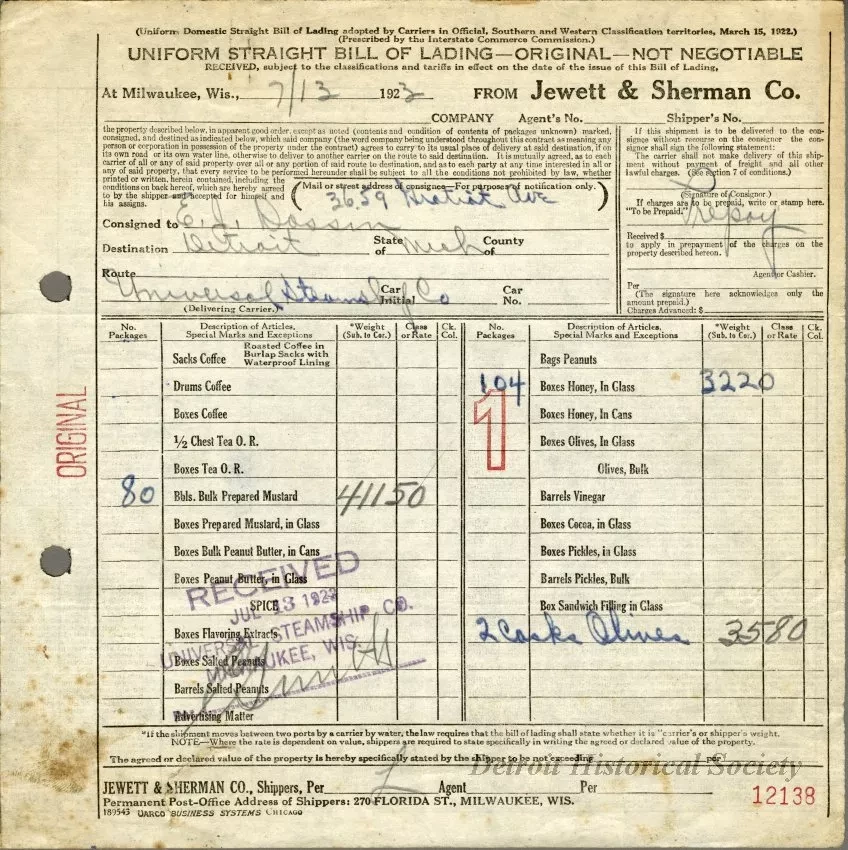 (Uniform Domestic Straight Bill of Lading adopted by Carriers in Official, Southern and Western Classification territories, March 15, 1922.)
(Prescribed by the Interstate Commerce Commission.)
UNIFORM STRAIGHT BILL OF LADING—ORIGINAL—NOT NEGOTIABLE
RECEIVED, subject to the classifications and tariffs in effect on the date of the issue of this Bill of Lading,
At Milwaukee, Wis., 7/13 192 FROM Jewett & Sherman Co.
COMPANY Agent's No. Shipper's No.
the property described below, in apparent good order, except as noted (contents and condition of contents of packages unknown) marked,
consigned, and destined as indicated below, which said company (the word company being understood throughout this contract as meaning any
person or corporation in possession of the property under the contract) agrees to carry to its usual place of delivery at said destination, if on
its own road or its own water line, otherwise to deliver to another carrier on the route to said destination. It is mutually agreed, as to each
carrier of all or any of said property over all or any portion of said route to destination, and as to each party at any time interested in all or
any of said property, that every service to be performed hereunder shall be subject to all the conditions not prohibited by law, whether
printed or written, herein contained, including the
conditions on back hereof, which are hereby agreed
to by the shipper and accepted for himself and
his assigns.
(Mail or street address of consignee—For purposes of notification only.)
3659 Gratiot Ave
Consigned to E. J. Dossin
Destination Detroit State of Mich County of
Route
Universal Steamship Co Car Initial Car No.
(Delivering Carrier.)
If this shipment is to be delivered to the con-
signee without recourse on the consignor the con-
signor shall sign the following statement:
The carrier shall not make delivery of this ship-
ment without payment of freight and all other
lawful charges. (See section 7 of conditions.)
(Signature of Consignor.)
If charges are to be prepaid, write or stamp here.
"To be Prepaid."
Prepay
Received $
to apply in prepayment of the charges on
the property described hereon.
Agent or Cashier.
Per
(The signature here acknowledges only the
amount prepaid.)
Charges Advanced: $
No. Packages Description of Articles, Special Marks and Exceptions *Weight (Sub. to Cor.) Class or Rate Ck. Col. No. Packages Description of Articles, Special Marks and Exceptions *Weight (Sub. to Cor.) Class or Rate Ck. Col.
Sacks Coffee Roasted Coffee in Burlap Sacks with Waterproof Lining Bags Peanuts
Drums Coffee 104 Boxes Honey, In Glass 3220
Boxes Coffee Boxes Honey, in Cans
½ Chest Tea O. R. Boxes Olives, in Glass
Boxes Tea O. R. Olives, Bulk
80 Bbls. Bulk Prepared Mustard 41150 Barrels Vinegar
Boxes Prepared Mustard, in Glass Boxes Cocoa, in Glass
Boxes Bulk Peanut Butter, in Cans Boxes Pickles, in Glass
Boxes Peanut Butter, in Glass Barrels Pickles, Bulk
SPICE Box Sandwich Filling in Glass
Boxes Flavoring Extracts 2 Casks Olives 3580
Boxes Salted Peanuts
Barrels Salted Peanuts
Advertising Matter
ORIGINAL
1
RECEIVED
JUL 13 192
UNIVERSAL STEAMSHIP CO.
MILWAUKEE, WIS.
*If the shipment moves between two ports by a carrier by water, the law requires that the bill of lading shall state whether it is "carrier's or shipper's weight.
NOTE—Where the rate is dependent on value, shippers are required to state specifically in writing the agreed or declared value of the property.
The agreed or declared value of the property is hereby specifically stated by the shipper to be not exceeding per
Detroit Historical Society
JEWETT & SHERMAN CO., Shippers, Per Agent Per
12138
Permanent Post-Office Address of Shippers: 270 FLORIDA ST., MILWAUKEE, WIS.
189543 UARCO BUSINESS SYSTEMS CHICAGO